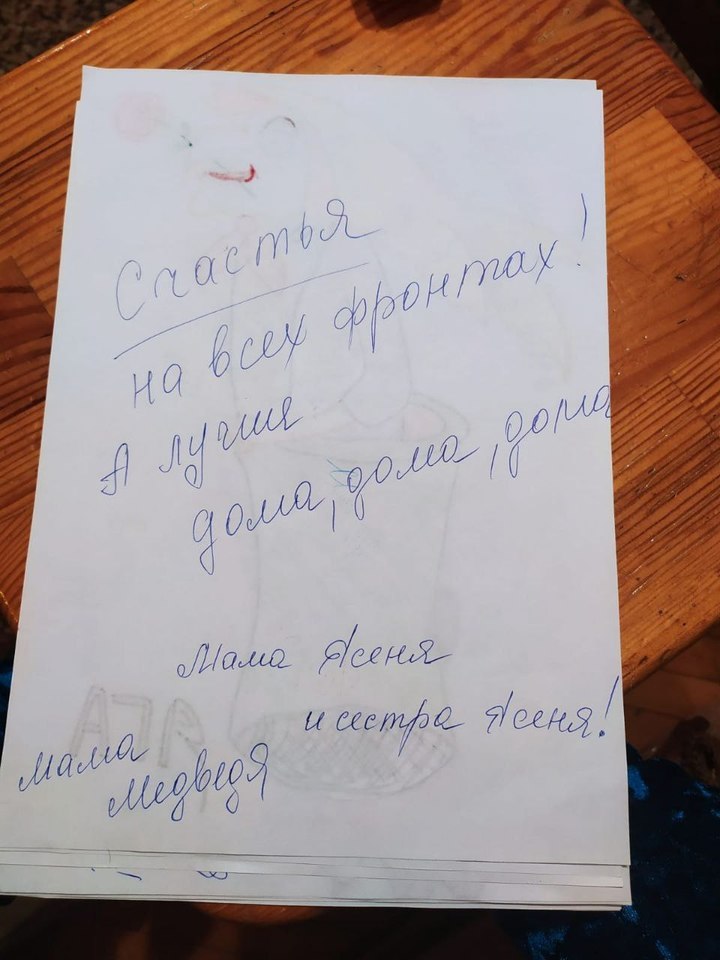 Счастья
на всех фронтах!
А лучше
дома, дома, дома
Мама Ясеня
и сестра Ясеня!
мама
Медведя
ЯГА